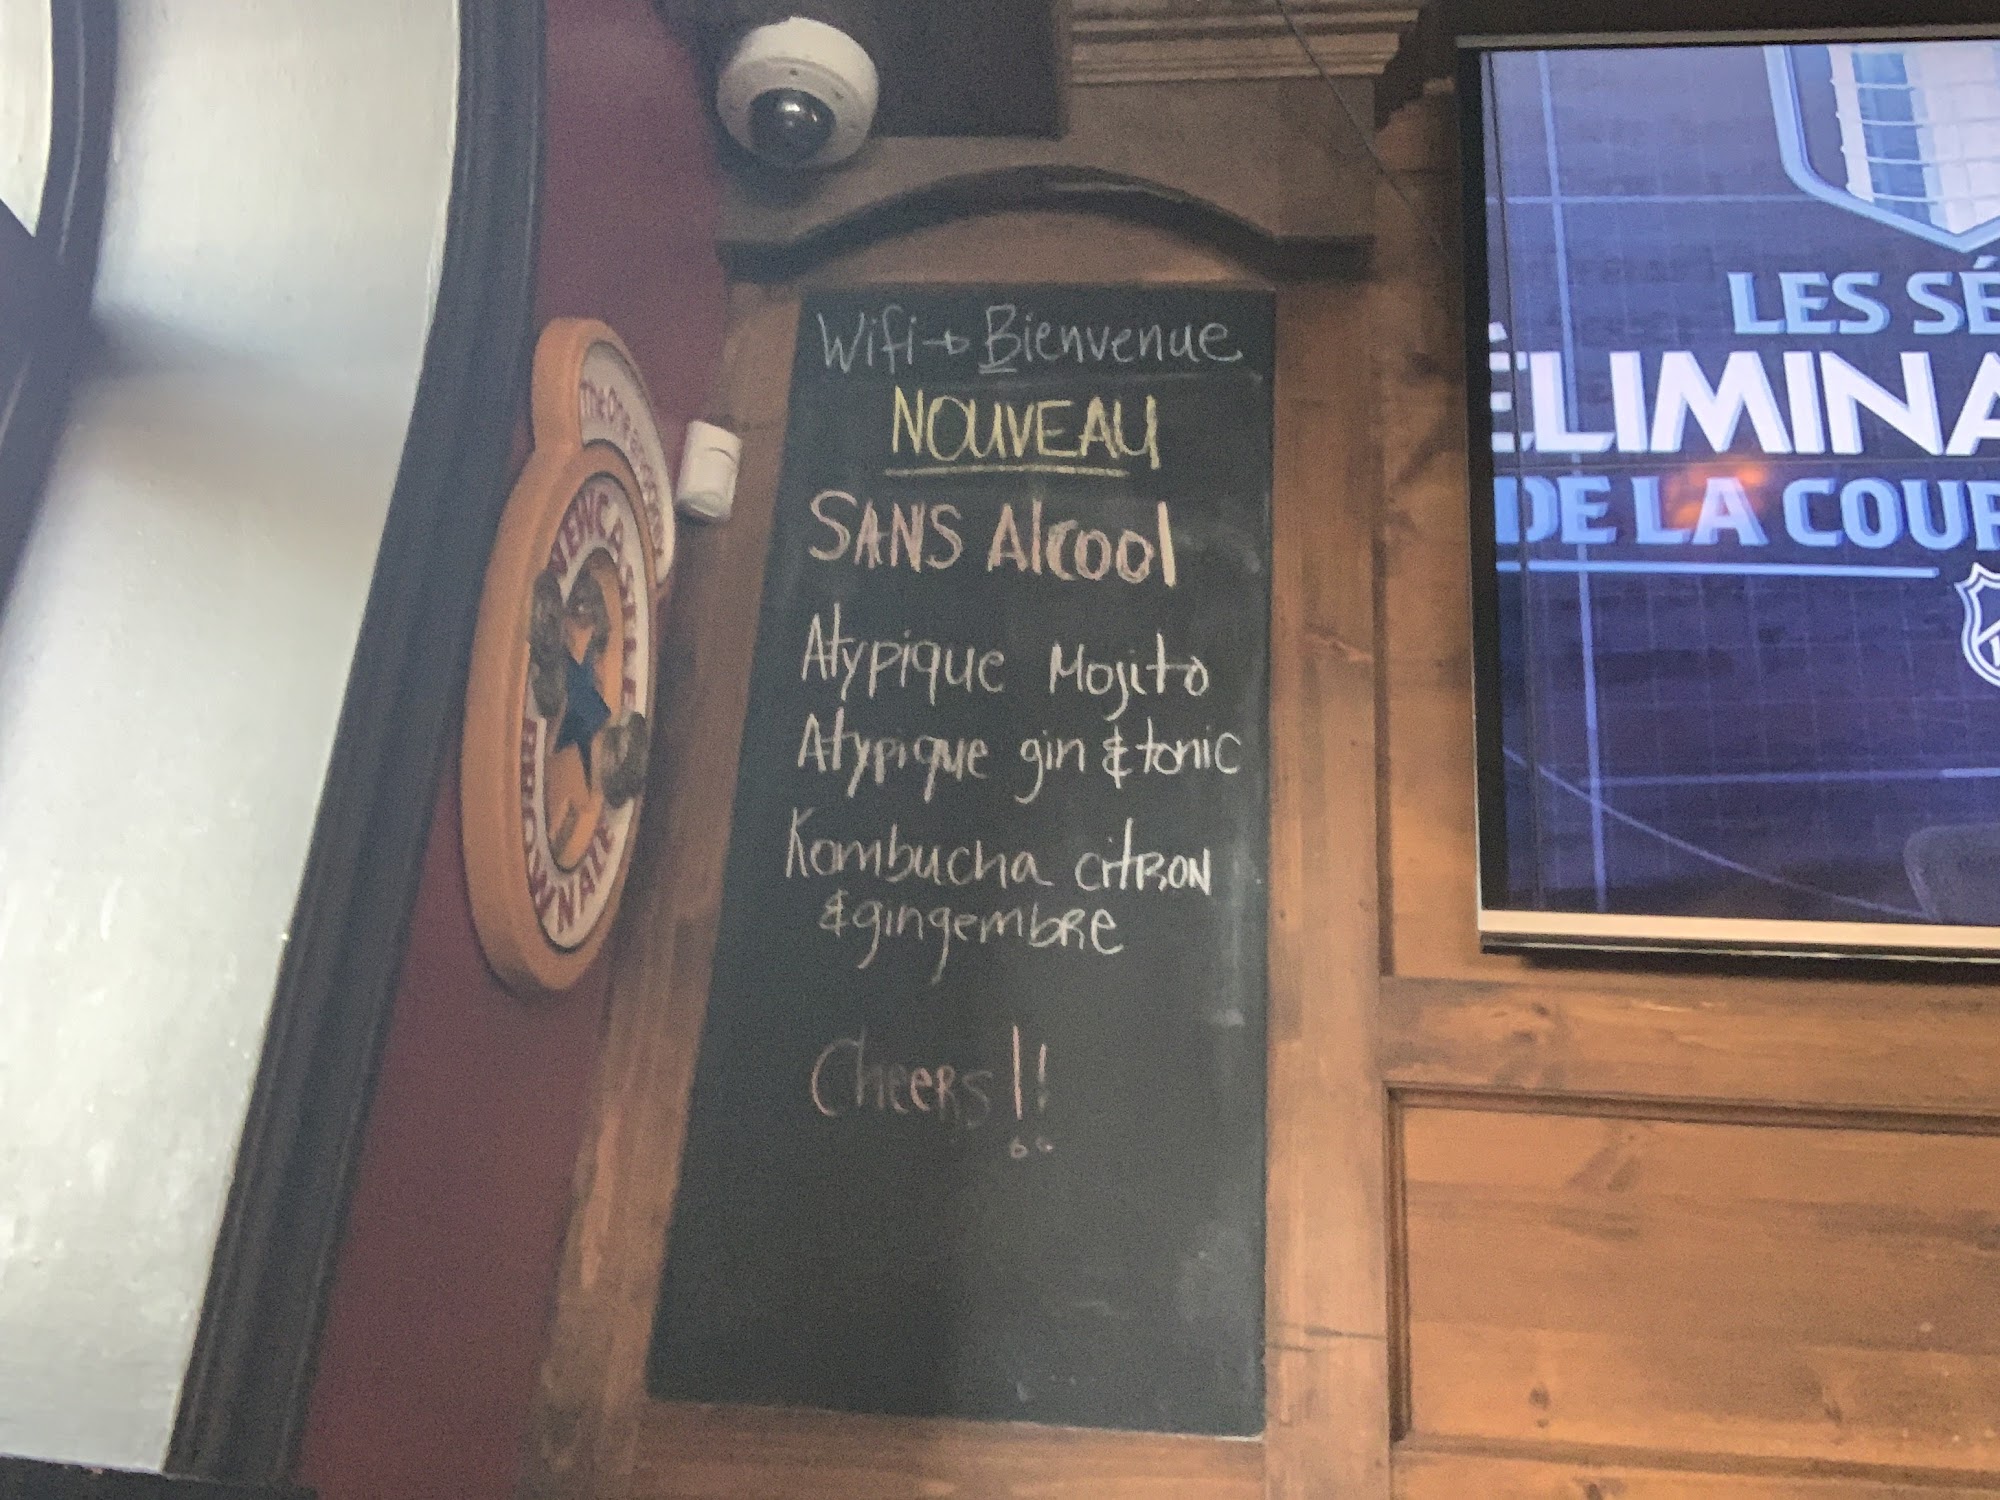 Wifi → Bienvenue
NOUVEAU
SANS Alcool
Atypique Mojito
Atypique gin & tonic
Kombucha citRON
& gingembRE
CheeRs!!
The One & Only
NEWCASTLE
BROWN ALE
LES SÉ
ÉLIMINA
DE LA COUP